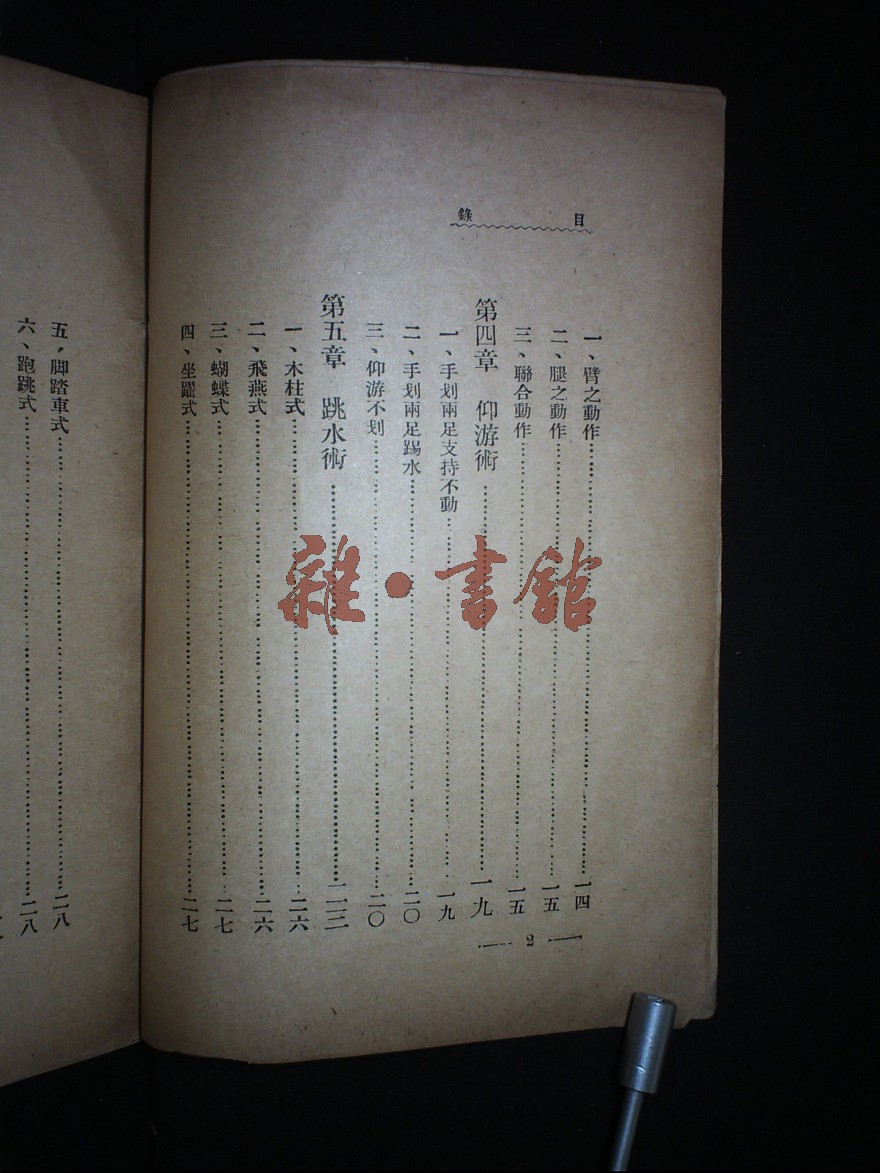 目錄
一、臂之動作…………一四
二、腿之動作…………一五
三、聯合動作…………一五
第四章 仰游術…………一九
一、手划兩足支持不動…………一九
二、手划兩足踢水…………二〇
三、仰游不划…………二〇
第五章 跳水術…………二三
一、木柱式…………二六
二、飛燕式…………二六
三、蝴蝶式…………二七
四、坐躍式…………二七
— 2 —
五、脚踏車式…………二八
六、跑跳式…………二八
雜·書館